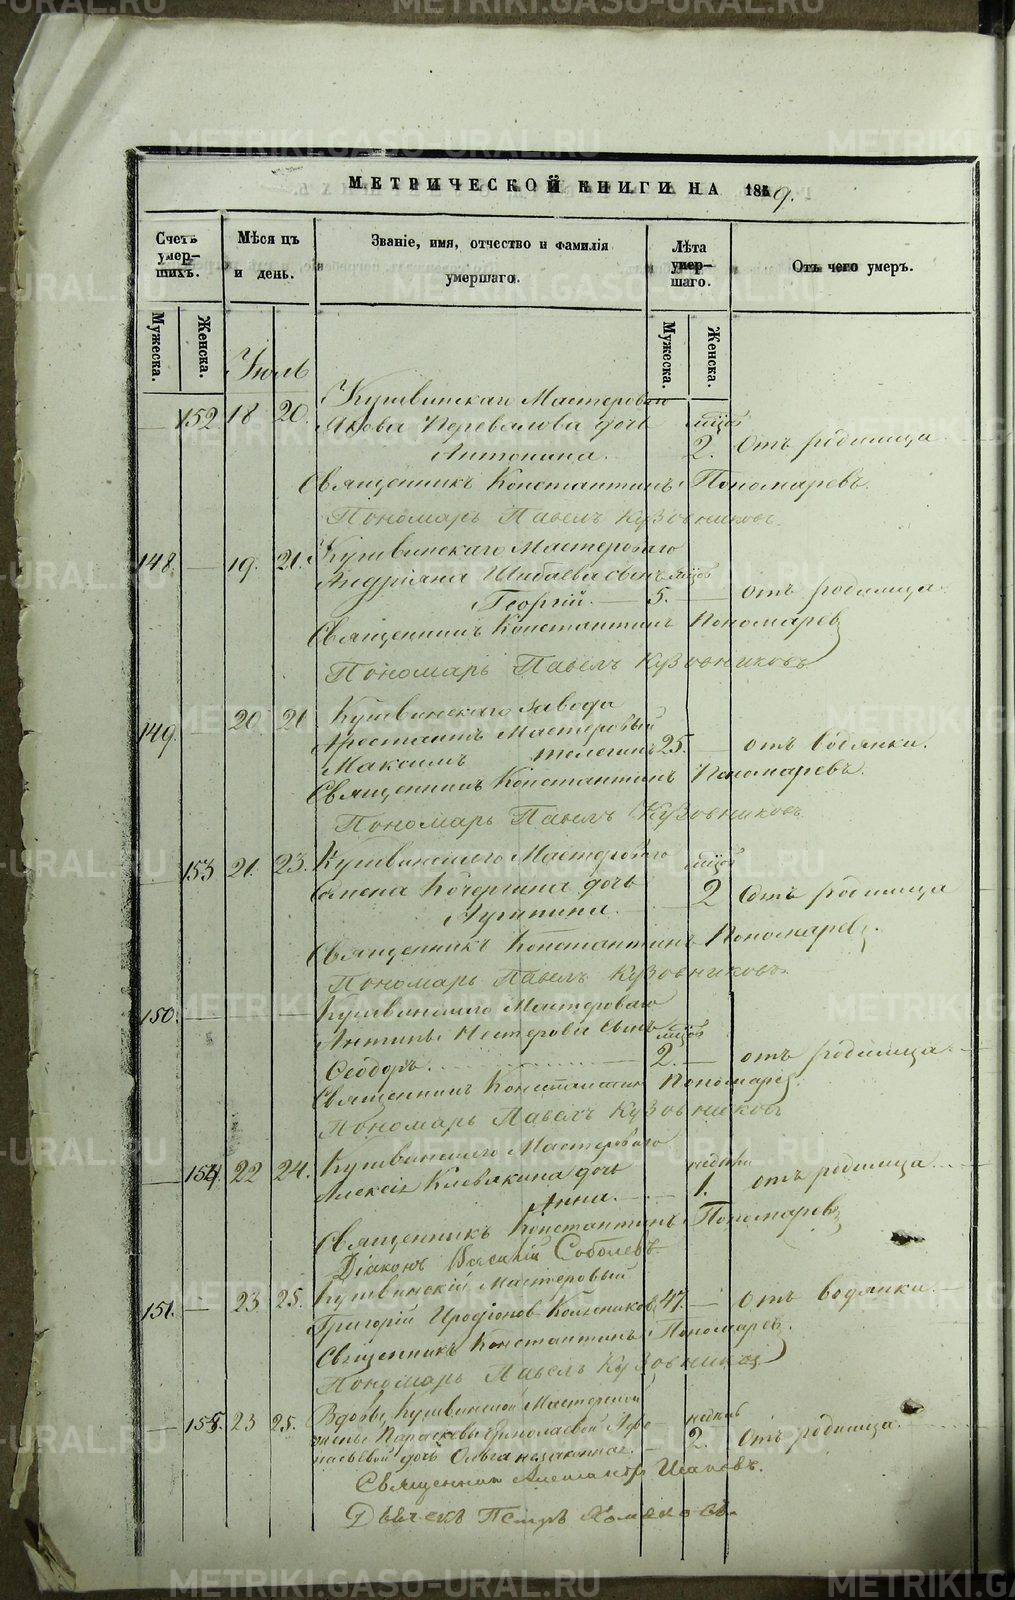 МЕТРИЧЕСКОЙ КНИГИ НА 1859.
Счетъ умер-шихъ.
Мѣсяцъ и день.
Званіе, имя, отчество и фамилія умершаго.
Лѣта умер-шаго.
Отъ чего умеръ.
Мужеска. Женска.
Мужеска. Женска.
Іюль
152 18 20. Кушвинскаго Мастероваго
Якова Перевалова дочь
Антонина. 2. Отъ родимца
Священникъ Константинъ Пономаревъ.
Пономарь Павелъ Кузовниковъ.
148. 19. 21. Кушвинскаго Мастероваго
Андріяна Шибаева сынъ
Георгій. 5. отъ родимца.
Священникъ Константинъ Пономаревъ
Пономарь Павелъ Кузовниковъ
149 20 21 Кушвинскаго завода
Арестантъ Мастеровый
Максимъ 25. отъ водянки.
Священникъ Константинъ Пономаревъ.
Пономарь Павелъ Кузовниковъ
153 21. 23. Кушвинскаго Мастероваго
Семена Кочергина дочь
2 Отъ родимца
Священникъ Константинъ Пономаревъ.
Пономарь Павелъ Кузовниковъ.
150. Кушвинскаго Мастероваго
Антипы Нестерова сынъ
Ѳеодоръ. 2. отъ родимца.
Священникъ Константинъ Пономаревъ.
Пономарь Павелъ Кузовниковъ
154 22 24. Кушвинскаго Мастероваго
Алексія Клевакина дочь
Анна. 1. отъ родимца.
Священникъ Константинъ Пономаревъ
Діаконъ Василій Соболевъ.
151. 23 25. Кушвинскій Мастеровый
Григорій Иродіонов Колесниковъ 47. Отъ водянки.
Священникъ Константинъ Пономаревъ.
Пономарь Павелъ Кузовниковъ
155. 23 25. Вдовы, Кушвинской Мастерской
жены Параскевы Ермолаевой
дочь Ольга незаконная. 2. Отъ родимца.
Священникъ Александръ
Дьячекъ Петръ
METRIKI.GASO-URAL.RU